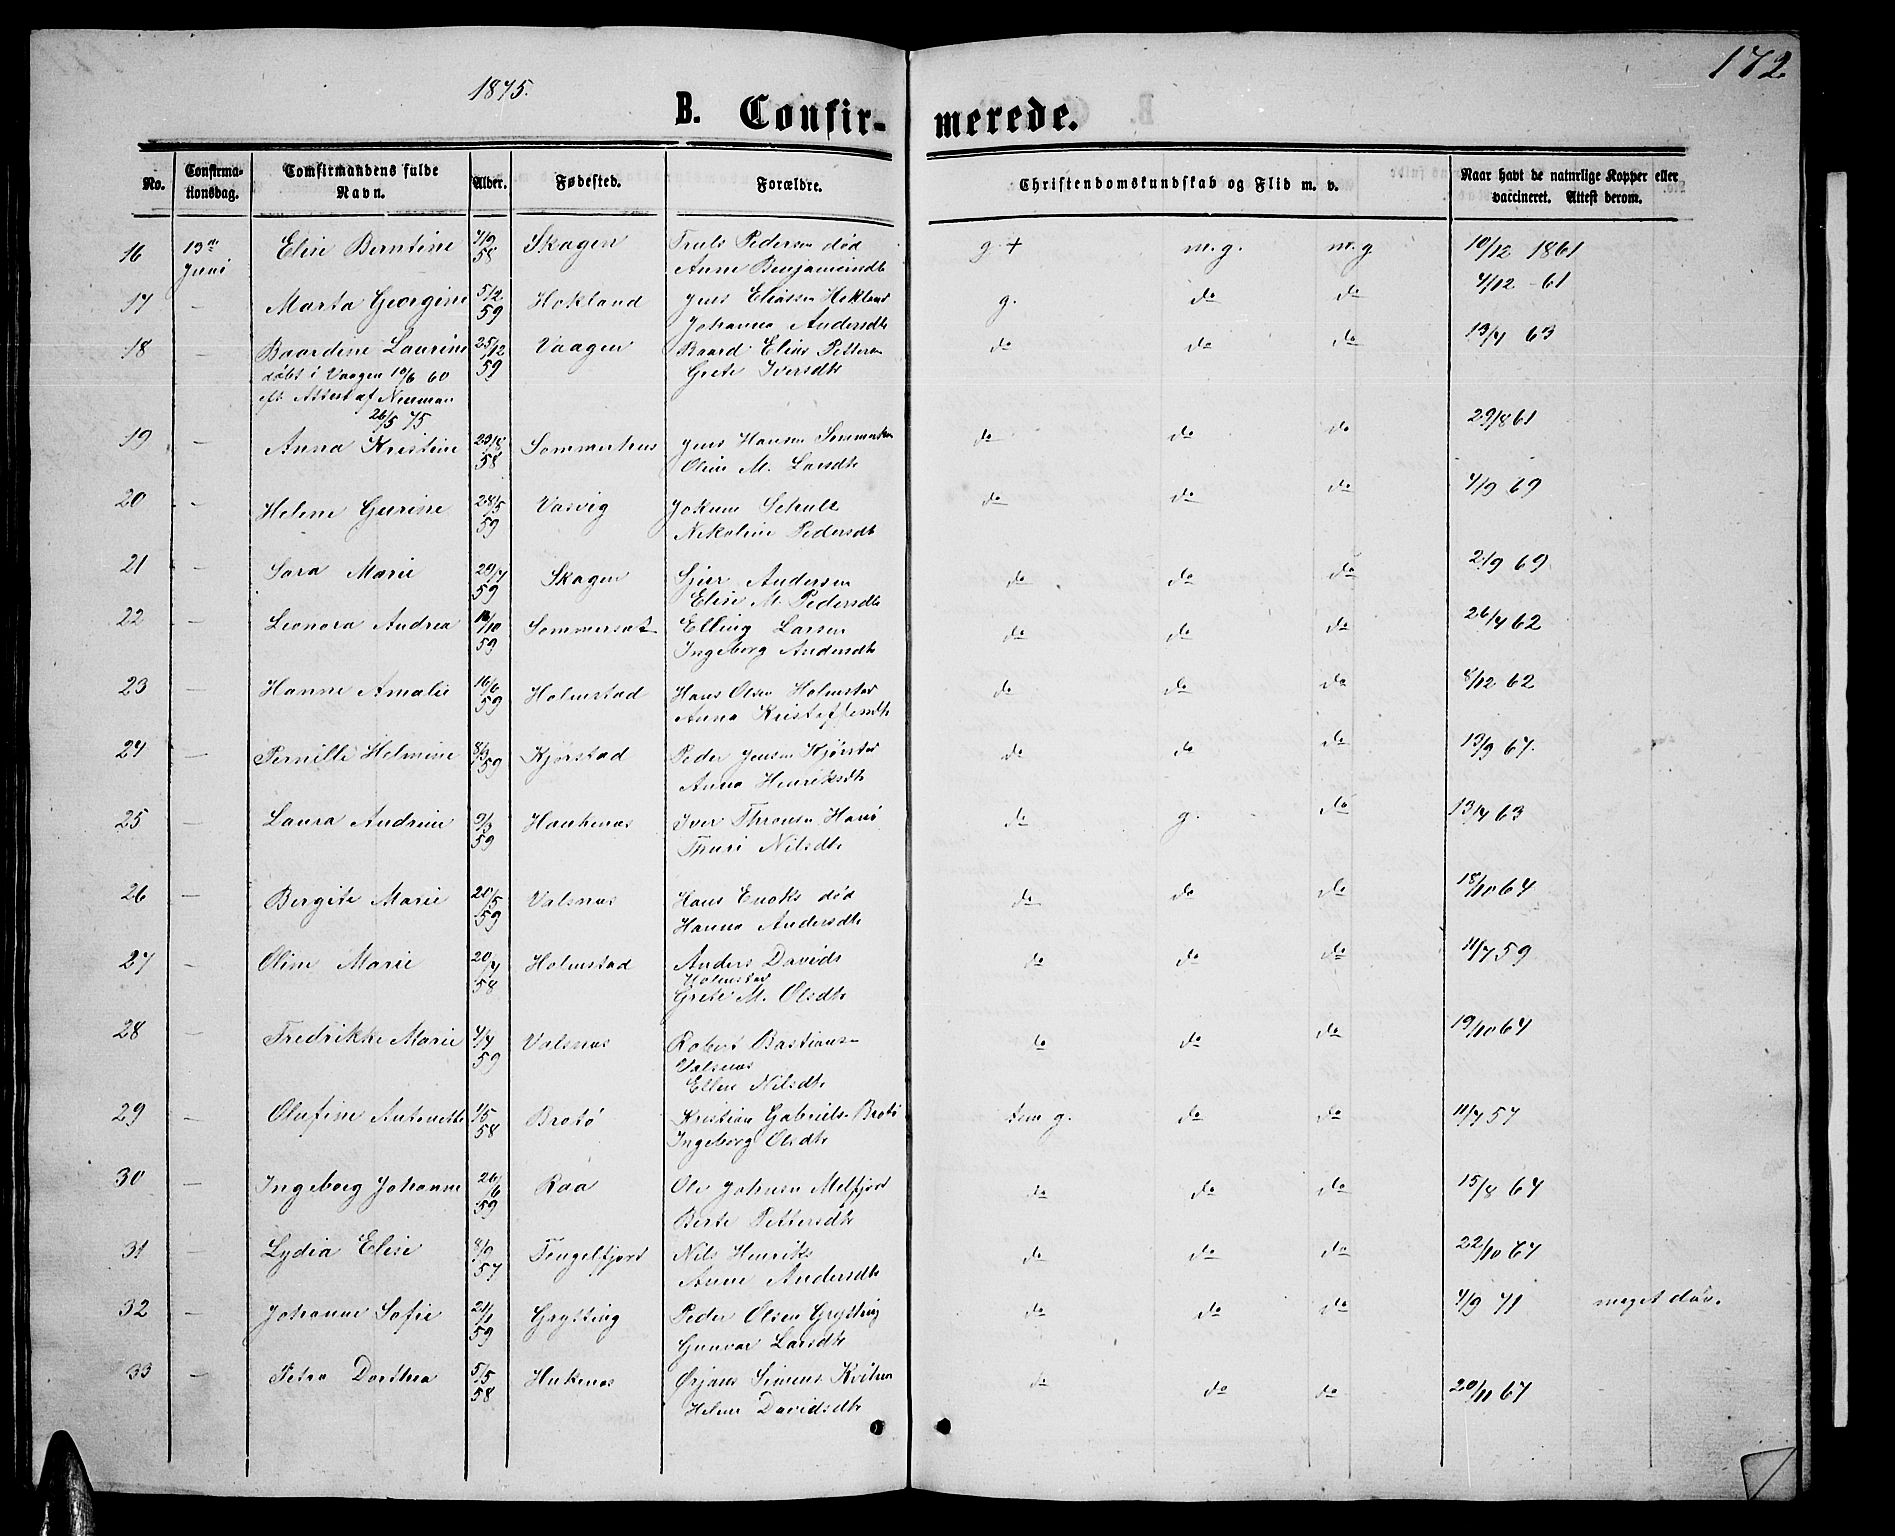 172
1875.
B. Confir- merede.
No.
Confirma-
tionsdag.
Comfirmandens fulde
Navn.
Alder.
Fødested.
Forældre.
Christendomskundskab og Flid m. v.
Naar havt de naturlige Kopper eller
vaccineret. Attest derom.
16 13de Elise Berntine 7/9 Skagen Truls Pedersen død g + m.g. m.g 10/12 1861
Juni 58 Anne Benjaminsdt
17 - Marta Georgine 5/12 Hokland Jens Eliassen Hokland g. do do 4/12 61
59 Johanna Andersdt
18 - Baardine Laurine 25/12 Vaagen Baard Elias Pettersen do do do 13/7 63
døbt i Vaagen 10/6 60 59 Grete Iversdt
eft Attest af Neuman
26/5 75
19 - Anna Kristine 29/8 Sommerhus Jens Hansen do do do 29/8 61
58 Oline M. Larsdt
20 - Helene Gurine 28/5 Vasvig Jokum Schult do do do 4/9 69
59 Nikoline Pedersdt
21 Sara Marie 20/7 Skagen Sjur Andersen do do do 2/9 69
59 Elise M. Pedersdt
22 - Leonora Andrea /10 Sommerset Elling Larsen do do do 26/7 62
59 Ingeborg Andersdt
23 - Hanne Amalie 16/6 Holmstad Hans Olsen Holmstad do do do 8/12 62
59 Anna Kristoffersdt
24 - Pernille Helmine 8/3 Kjørstad Peder Jensen Kjørstad do do do 13/9 67.
59 Anna Henriksdt
25 - Laura Andrine 9/3 Haukenæs Iver Thronsen do g. do 13/7 63
59 Thuri Nilsdt
26 - Bergite Marie 21/5 Valsnæs Hans Enoks død do do do 18/10 64
59 Hanna Andersdt
27 - Oline Marie 20/7 Holmstad Anders Davids do do do 11/7 59
58 Holmstad
Grete M. Olsdt
28 - Fredrikke Marie 4/7 Valsnæs Robert Bastians- do do do 19/10 64
59 Valsnæs
Ellen Nilsdt
29 - Olufine Antonette 1/5 Brotø Kristian Gabriels. Brotø tem g. do do 11/7 57
58 Ingeborg Olsdt
30 - Ingeborg Johanne 26/6 Raa Ole Johnsen Melfjord do do do 15/8 64
59 Berte Pettersdt
31 - Lydia Elise 8/9 Tengelfjord Nils Henriks do do do 22/10 67
57 Anne Andersdt
32 - Johanne Sofie 21/1 Grytting Peder Olsen Grytting do do do 4/9 71 meget døv.
59 Gunvor Larsdt
33 - Petra Dorthea 5/5 Hukenæs Ørjans Simens do do do 20/11 67
58 Helene Davidsdt